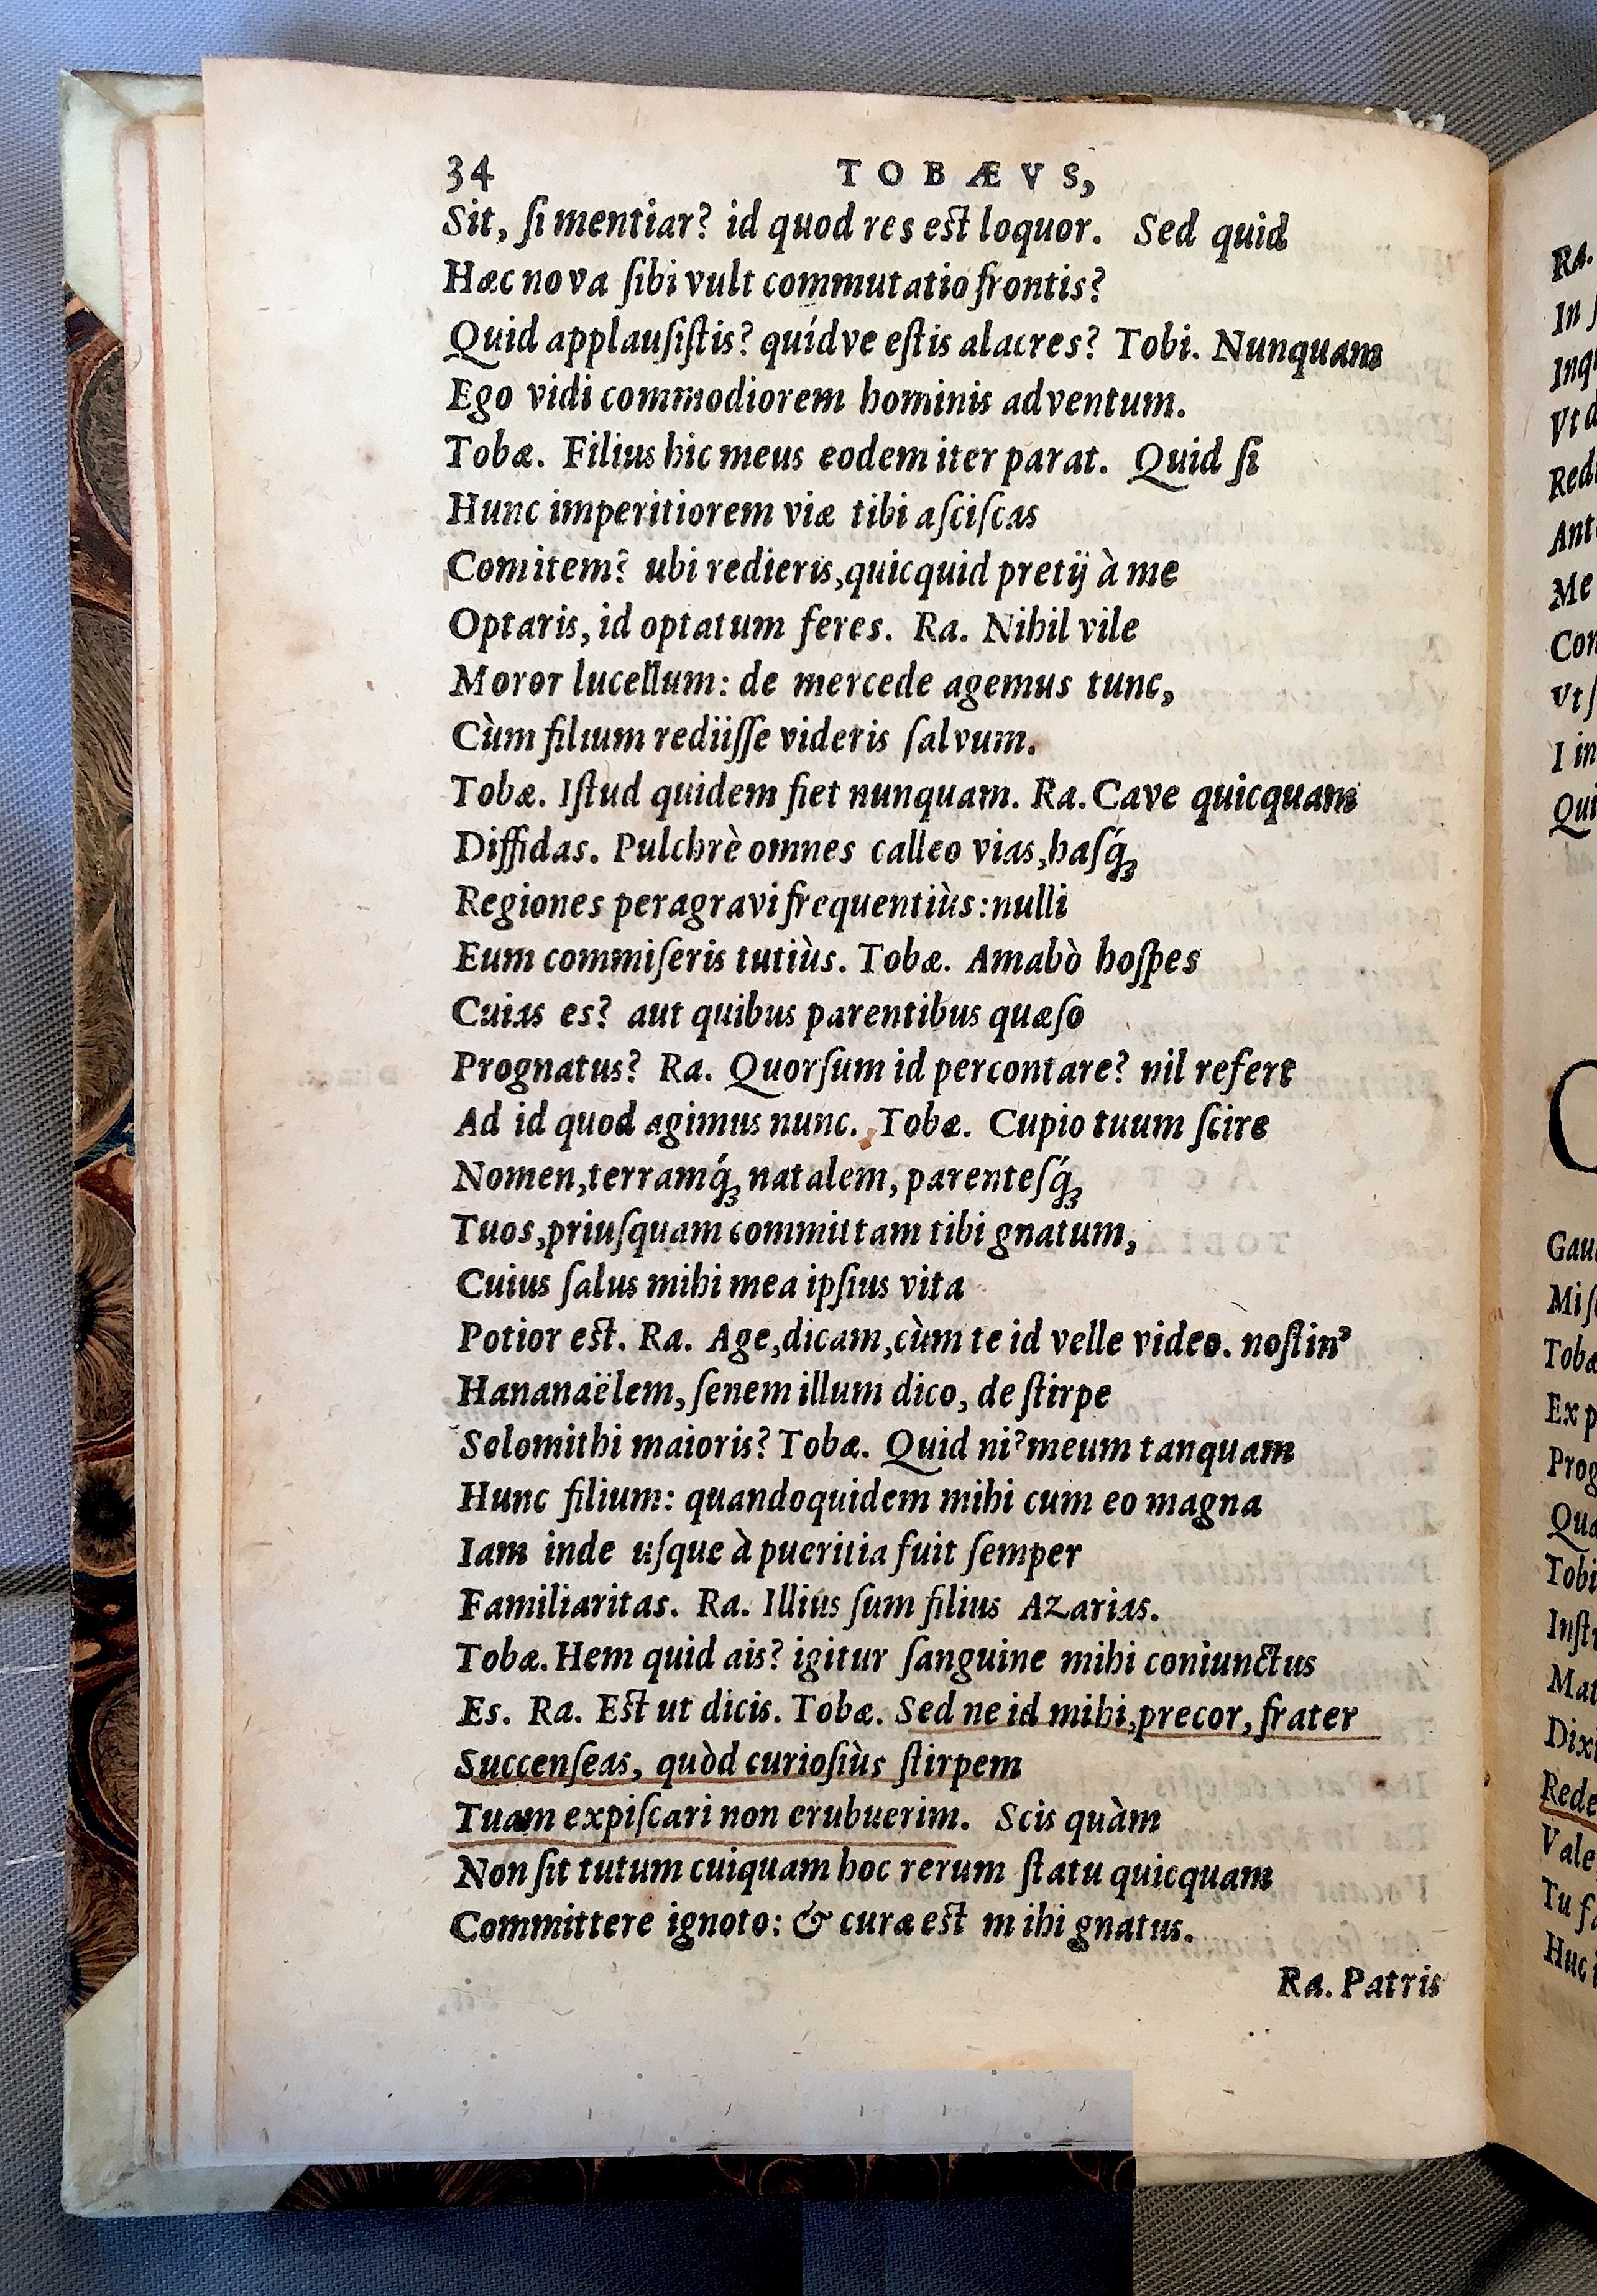 34 TOBÆVS,
Sit, ſi mentiar? id quod res eſt loquor. Sed quid
Hæc nova ſibi vult commutatio frontis?
Quid applauſiſtis? quídve eſtis alacres? Tobi. Nunquam
Ego vidi commodiorem hominis adventum.
Tobæ. Filius hic meus eodem iter parat. Quid ſi
Hunc imperitiorem viæ tibi aſciſcas
Comitem? ubi redieris, quicquid pretij à me
Optaris, id optatum feres. Ra. Nihil vile
Moror lucellum: de mercede agemus tunc,
Cùm filium rediiſſe videris ſalvum.
Tobæ. Iſtud quidem fiet nunquam. Ra. Cave quicquam
Diffidas. Pulchrè omnes calleo vias, haſq́;
Regiones peragravi frequentiùs: nulli
Eum commiſeris tutiùs. Tobæ. Amabò hoſpes
Cuias es? aut quibus parentibus quæſo
Prognatus? Ra. Quorſum id percontare? nil refert
Ad id quod agimus nunc. Tobæ. Cupio tuum ſcire
Nomen, terramq́; natalem, parenteſq́;
Tuos, priuſquam committam tibi gnatum,
Cuius ſalus mihi mea ipſius vita
Potior eſt. Ra. Age, dicam, cùm te id velle video. noſtin'
Hananaëlem, ſenem illum dico, de ſtirpe
Solomithi maioris? Tobæ. Quid ni? meum tanquam
Hunc filium: quandoquidem mihi cum eo magna
Iam inde uſque à pueritia fuit ſemper
Familiaritas. Ra. Illius ſum filius Azarias.
Tobæ. Hem quid ais? igitur ſanguine mihi coniunctus
Es. Ra. Eſt ut dicis. Tobæ. Sed ne id mihi, precor, frater
Succenſeas, quòd curioſiùs ſtirpem
Tuam expiſcari non erubuerim. Scis quàm
Non ſit tutum cuiquam hoc rerum ſtatu quicquam
Committere ignoto: & curæ eſt mihi gnatus.
Ra. Patris
Ra.
In
Vt
Me
I in
Tobæ
Ex p
Tobi
Dixi
Rede
Vale
Tu
Huc